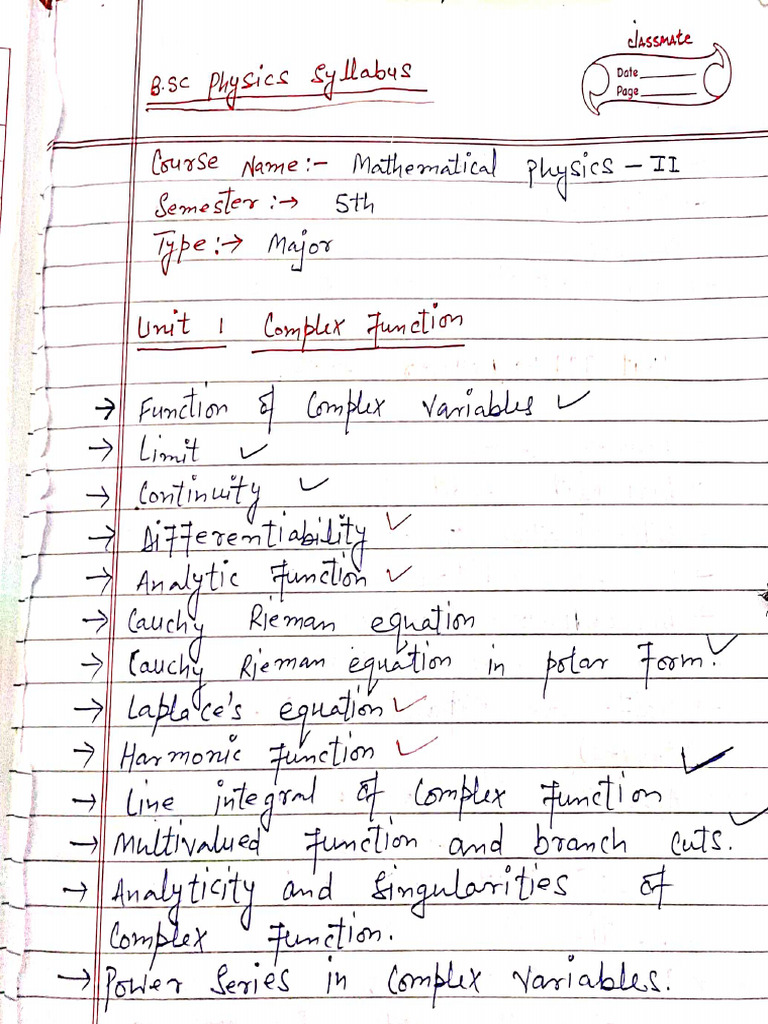 classmate
Date
Page
B.SC Physics Syllabus
Course Name:- Mathematical Physics - II
Semester:→ 5th
Type:→ Major
Unit 1 Complex Function
→ Function of Complex Variables ✓
→ Limit ✓
→ Continuity ✓
→ Differentiability ✓
→ Analytic Function ✓
→ Cauchy Rieman equation
→ Cauchy Rieman equation in polar Form. ✓
→ Laplace's equation ✓
→ Harmonic Function ✓
→ Line integral of Complex Function ✓
→ Multivalued Function and branch cuts. ✓
→ Analyticity and Singularities of
Complex Function.
→ Power Series in Complex Variables.